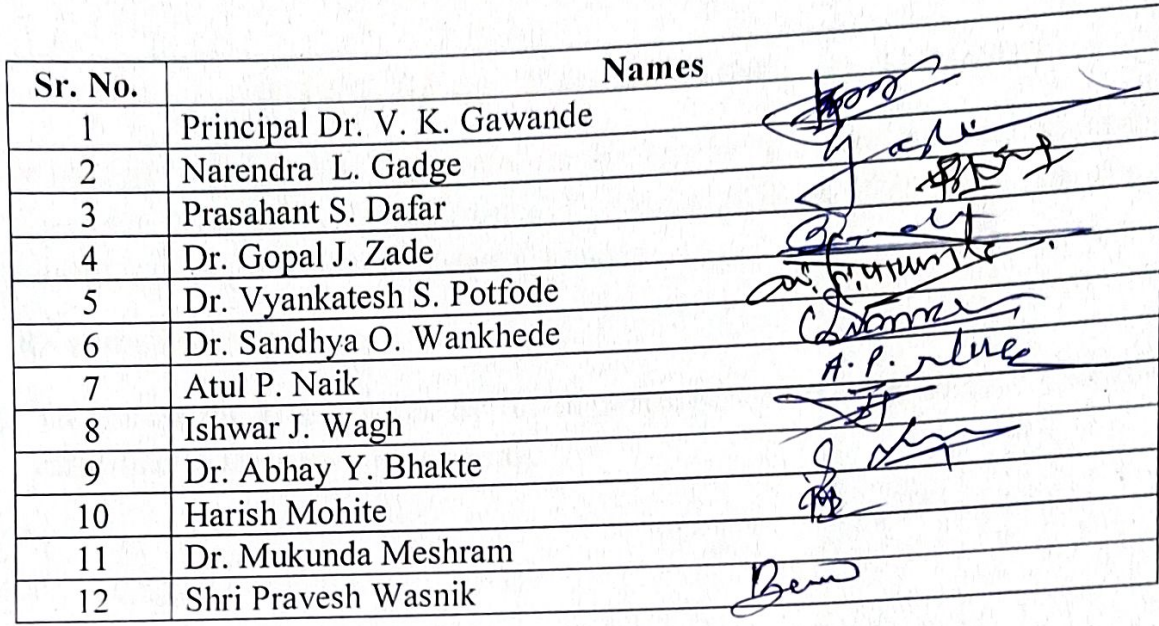 Sr. No. Names
1 Principal Dr. V. K. Gawande
2 Narendra L. Gadge
3 Prasahant S. Dafar
4 Dr. Gopal J. Zade
5 Dr. Vyankatesh S. Potfode
6 Dr. Sandhya O. Wankhede
7 Atul P. Naik A. P.
8 Ishwar J. Wagh
9 Dr. Abhay Y. Bhakte
10 Harish Mohite
11 Dr. Mukunda Meshram
12 Shri Pravesh Wasnik